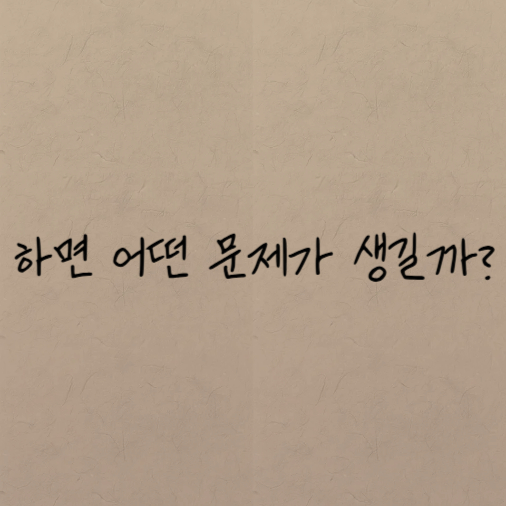 하면 어떤 문제가 생길까?